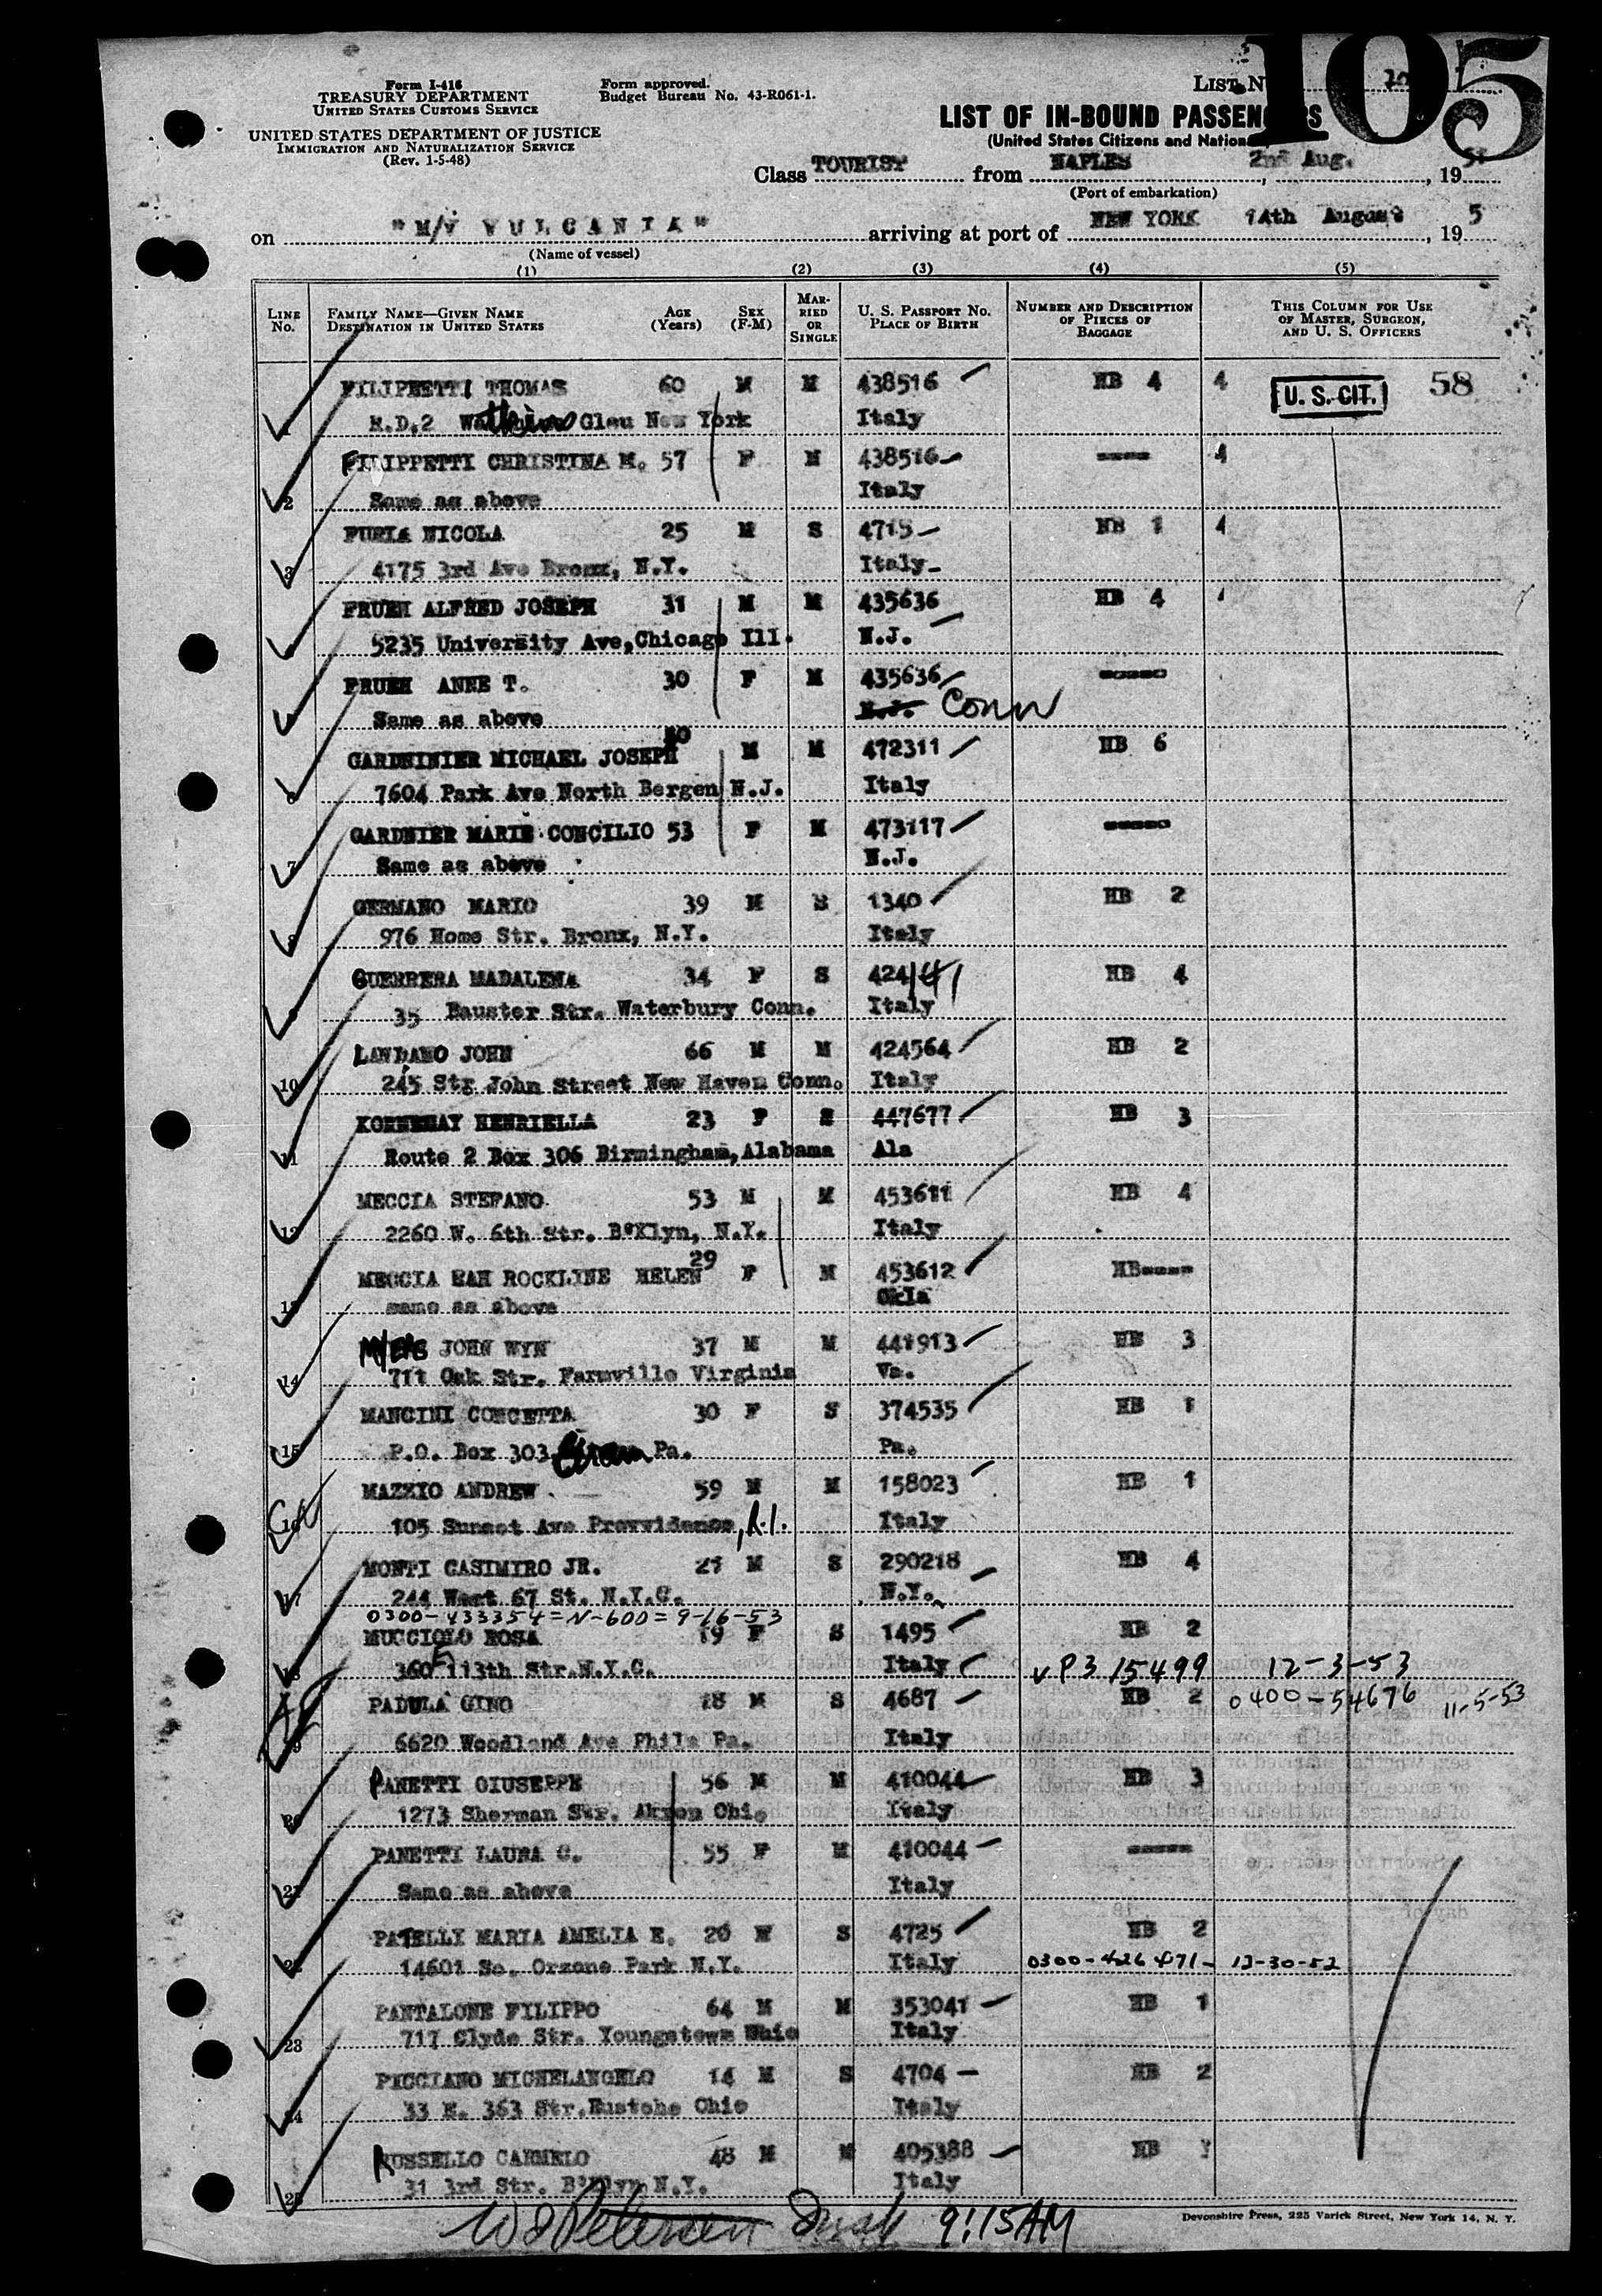 105
Form I-416
TREASURY DEPARTMENT
UNITED STATES CUSTOMS SERVICE
Form approved.
Budget Bureau No. 43-R061-1.
UNITED STATES DEPARTMENT OF JUSTICE
IMMIGRATION AND NATURALIZATION SERVICE
(Rev. 1-5-48)
LIST OF IN-BOUND PASSENGERS
(United States Citizens and Nationals)
Class TOURIST from NAPLES, 2nd Aug., 19
(Port of embarkation)
on "M/V VULCANIA" arriving at port of NEW YORK 14th August, 195
(Name of vessel)
(1) (2) (3) (4) (5)
LINE No. FAMILY NAME—GIVEN NAME DESTINATION IN UNITED STATES AGE (Years) SEX (F-M) MARRIED OR SINGLE U. S. PASSPORT NO. PLACE OF BIRTH NUMBER AND DESCRIPTION OF PIECES OF BAGGAGE THIS COLUMN FOR USE OF MASTER, SURGEON, AND U. S. OFFICERS
FILIPPETTI THOMAS 60 M M 438516 HB 4 4 U. S. CIT. 58
1 R.D.2 Watkins Glen New York Italy
FILIPPETTI CHRISTINA M. 57 F M 438516 ---- 4
2 Same as above Italy
FURIA NICOLA 25 M S 4715 HB 1 4
3 4175 3rd Ave Bronx, N.Y. Italy
FRUEH ALFRED JOSEPH 31 M M 435636 HB 4
5235 University Ave, Chicago Ill. N.J.
FRUEH ANNE T. 30 F M 435636 -----
Same as above N.J. Conn
GARDNINIER MICHAEL JOSEPH M M 472311 HB 6
6 7604 Park Ave North Bergen N.J. Italy
GARDNIER MARIE CONCILIO 53 F M 473117 -----
7 Same as above N.J.
GERMANO MARIO 39 M S 1340 HB 2
8 976 Home Str. Bronx, N.Y. Italy
GUERRERA MADALENA 34 F S 424141 HB 4
35 Bauster Str. Waterbury Conn. Italy
LANDANO JOHN 66 M M 424564 HB 2
10 245 Str John Street New Haven Conn. Italy
KORNEGAY HENRIELLA 23 F S 447677 HB 3
11 Route 2 Box 306 Birmingham, Alabama Ala
MECCIA STEFANO 53 M M 453611 HB 4
12 2260 W. 6th Str. B'Klyn, N.Y. Italy
MECCIA RAH ROCKLINE HELEN 29 F M 453612 HB----
13 same as above Okla
MYERS JOHN WYN 37 M M 441913 HB 3
14 711 Oak Str. Farmville Virginia Va.
MANCINI CONCETTA 30 F S 374535 HB 1
15 P.O. Box 303 Pa. Pa.
MAZZIO ANDREW 59 M M 158023 HB 1
16 105 Sunset Ave Provvidence, R.I. Italy
MONTI CASIMIRO JR. 21 M S 290218 HB 4
17 244 West 67 St. N.Y.C. N.Y.
0300-433354=N-600=9-16-53
MUCCIOLO ROSA 19 F S 1495 HB 2
18 360 E 113th Str. N.Y.C. Italy VP3 15499 12-3-53
PADULA GINO 18 M S 4687 HB 2 0400-54676 11-5-53
19 6620 Woodland Ave Phila Pa. Italy
PANETTI GIUSEPPE 56 M M 410044 HB 3
20 1273 Sherman Str. Akron Ohio Italy
PANETTI LAURA C. 55 F M 410044 -----
21 Same as above Italy
PATELLI MARIA AMELIA E. 20 S 4725 HB 2
14601 So. Orzone Park N.Y. Italy 0300-426471- 12-30-52
PANTALONE FILIPPO 64 M M 353041 HB 1
23 717 Clyde Str. Youngstown Ohio Italy
PICCIANO MICHELANGELO 14 M S 4704 HB 2
24 33 E. 363 Str. Eustohe Ohio Italy
RUSSELLO CARMELO 48 M M 405388 HB
25 31 3rd Str. B'Klyn N.Y. Italy
9:15AM
Devonshire Press, 225 Varick Street, New York 14, N. Y.